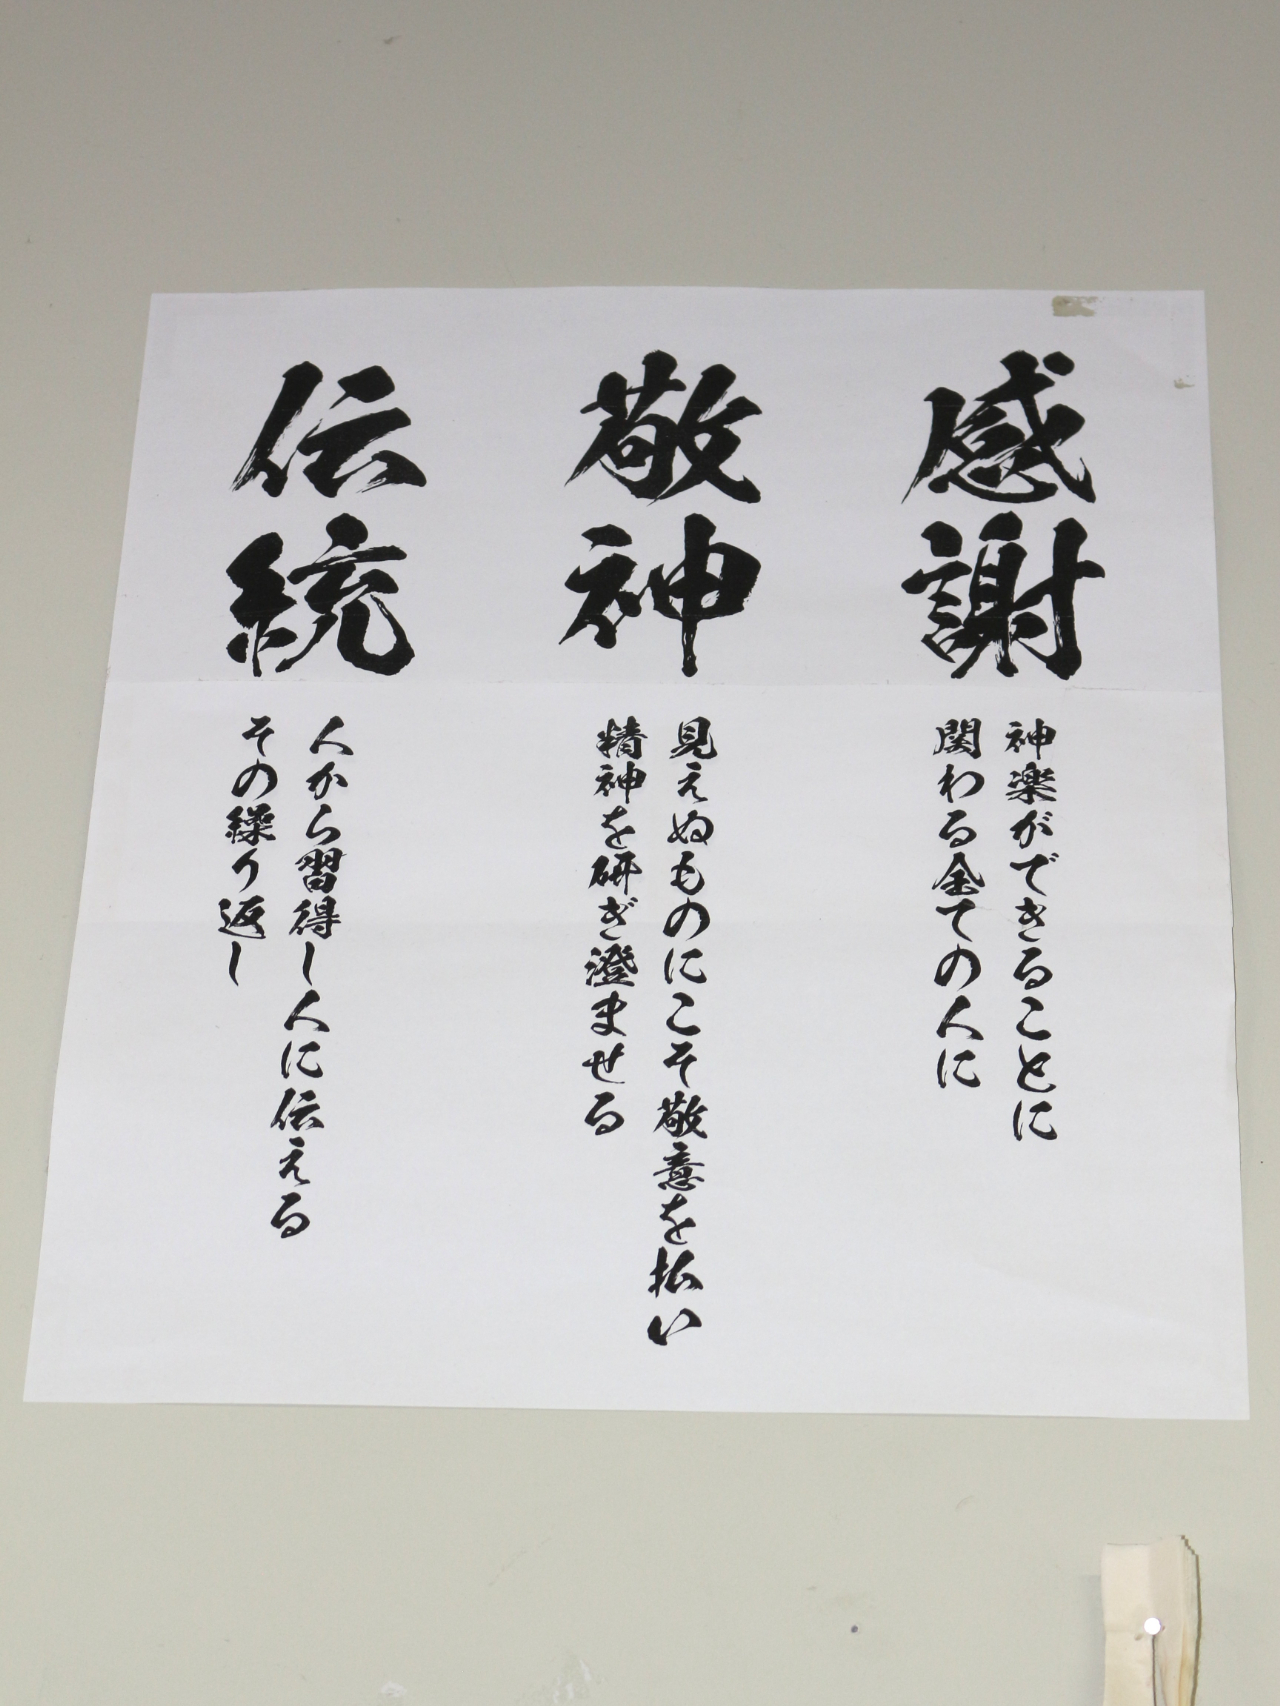 感謝
神楽ができることに
関わる全ての人に
敬神
見えぬものにこそ敬意を払い
精神を研ぎ澄ませる
伝統
人から習得し人に伝える
その繰り返し